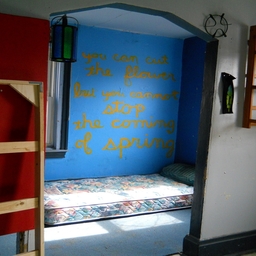 you can cut
the flowers
but you cannot
stop
the coming
of spring